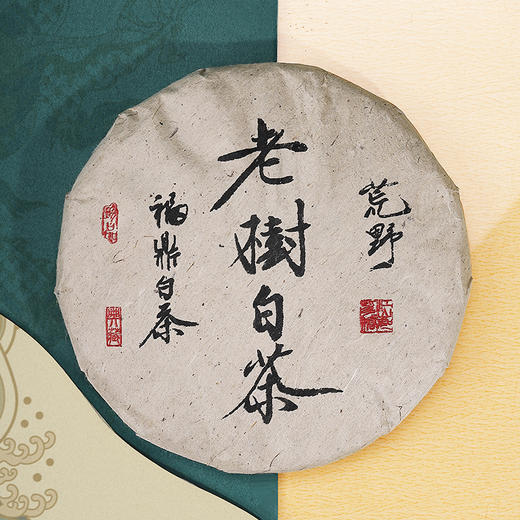 荒野
老樹白茶
福鼎白茶